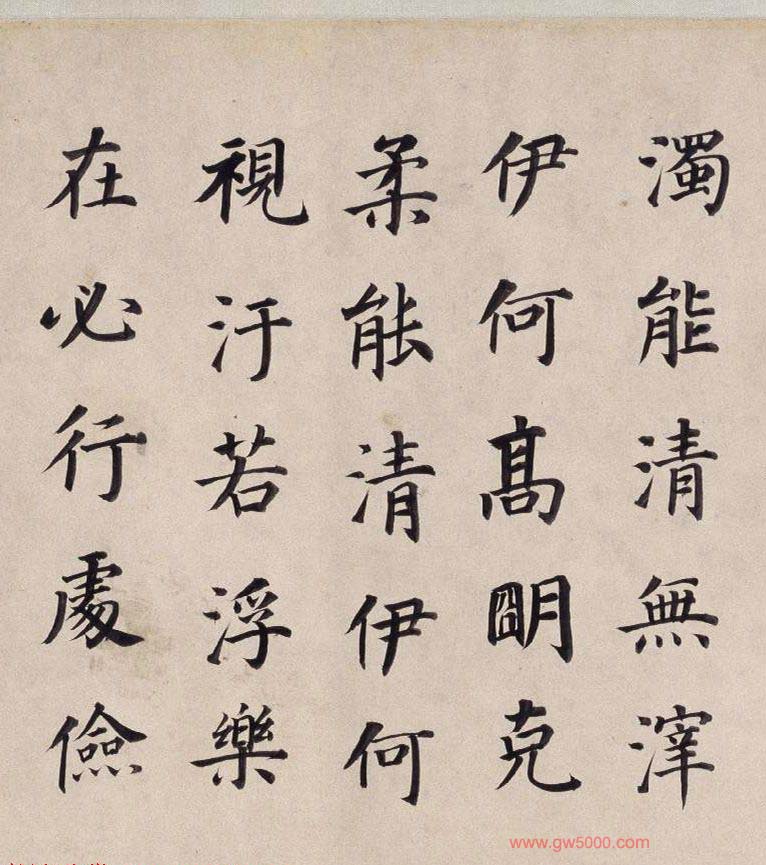 濁能清無滓
伊何高明克
柔能清伊何
視汙若浮樂
在必行處儉
www.gw5000.com